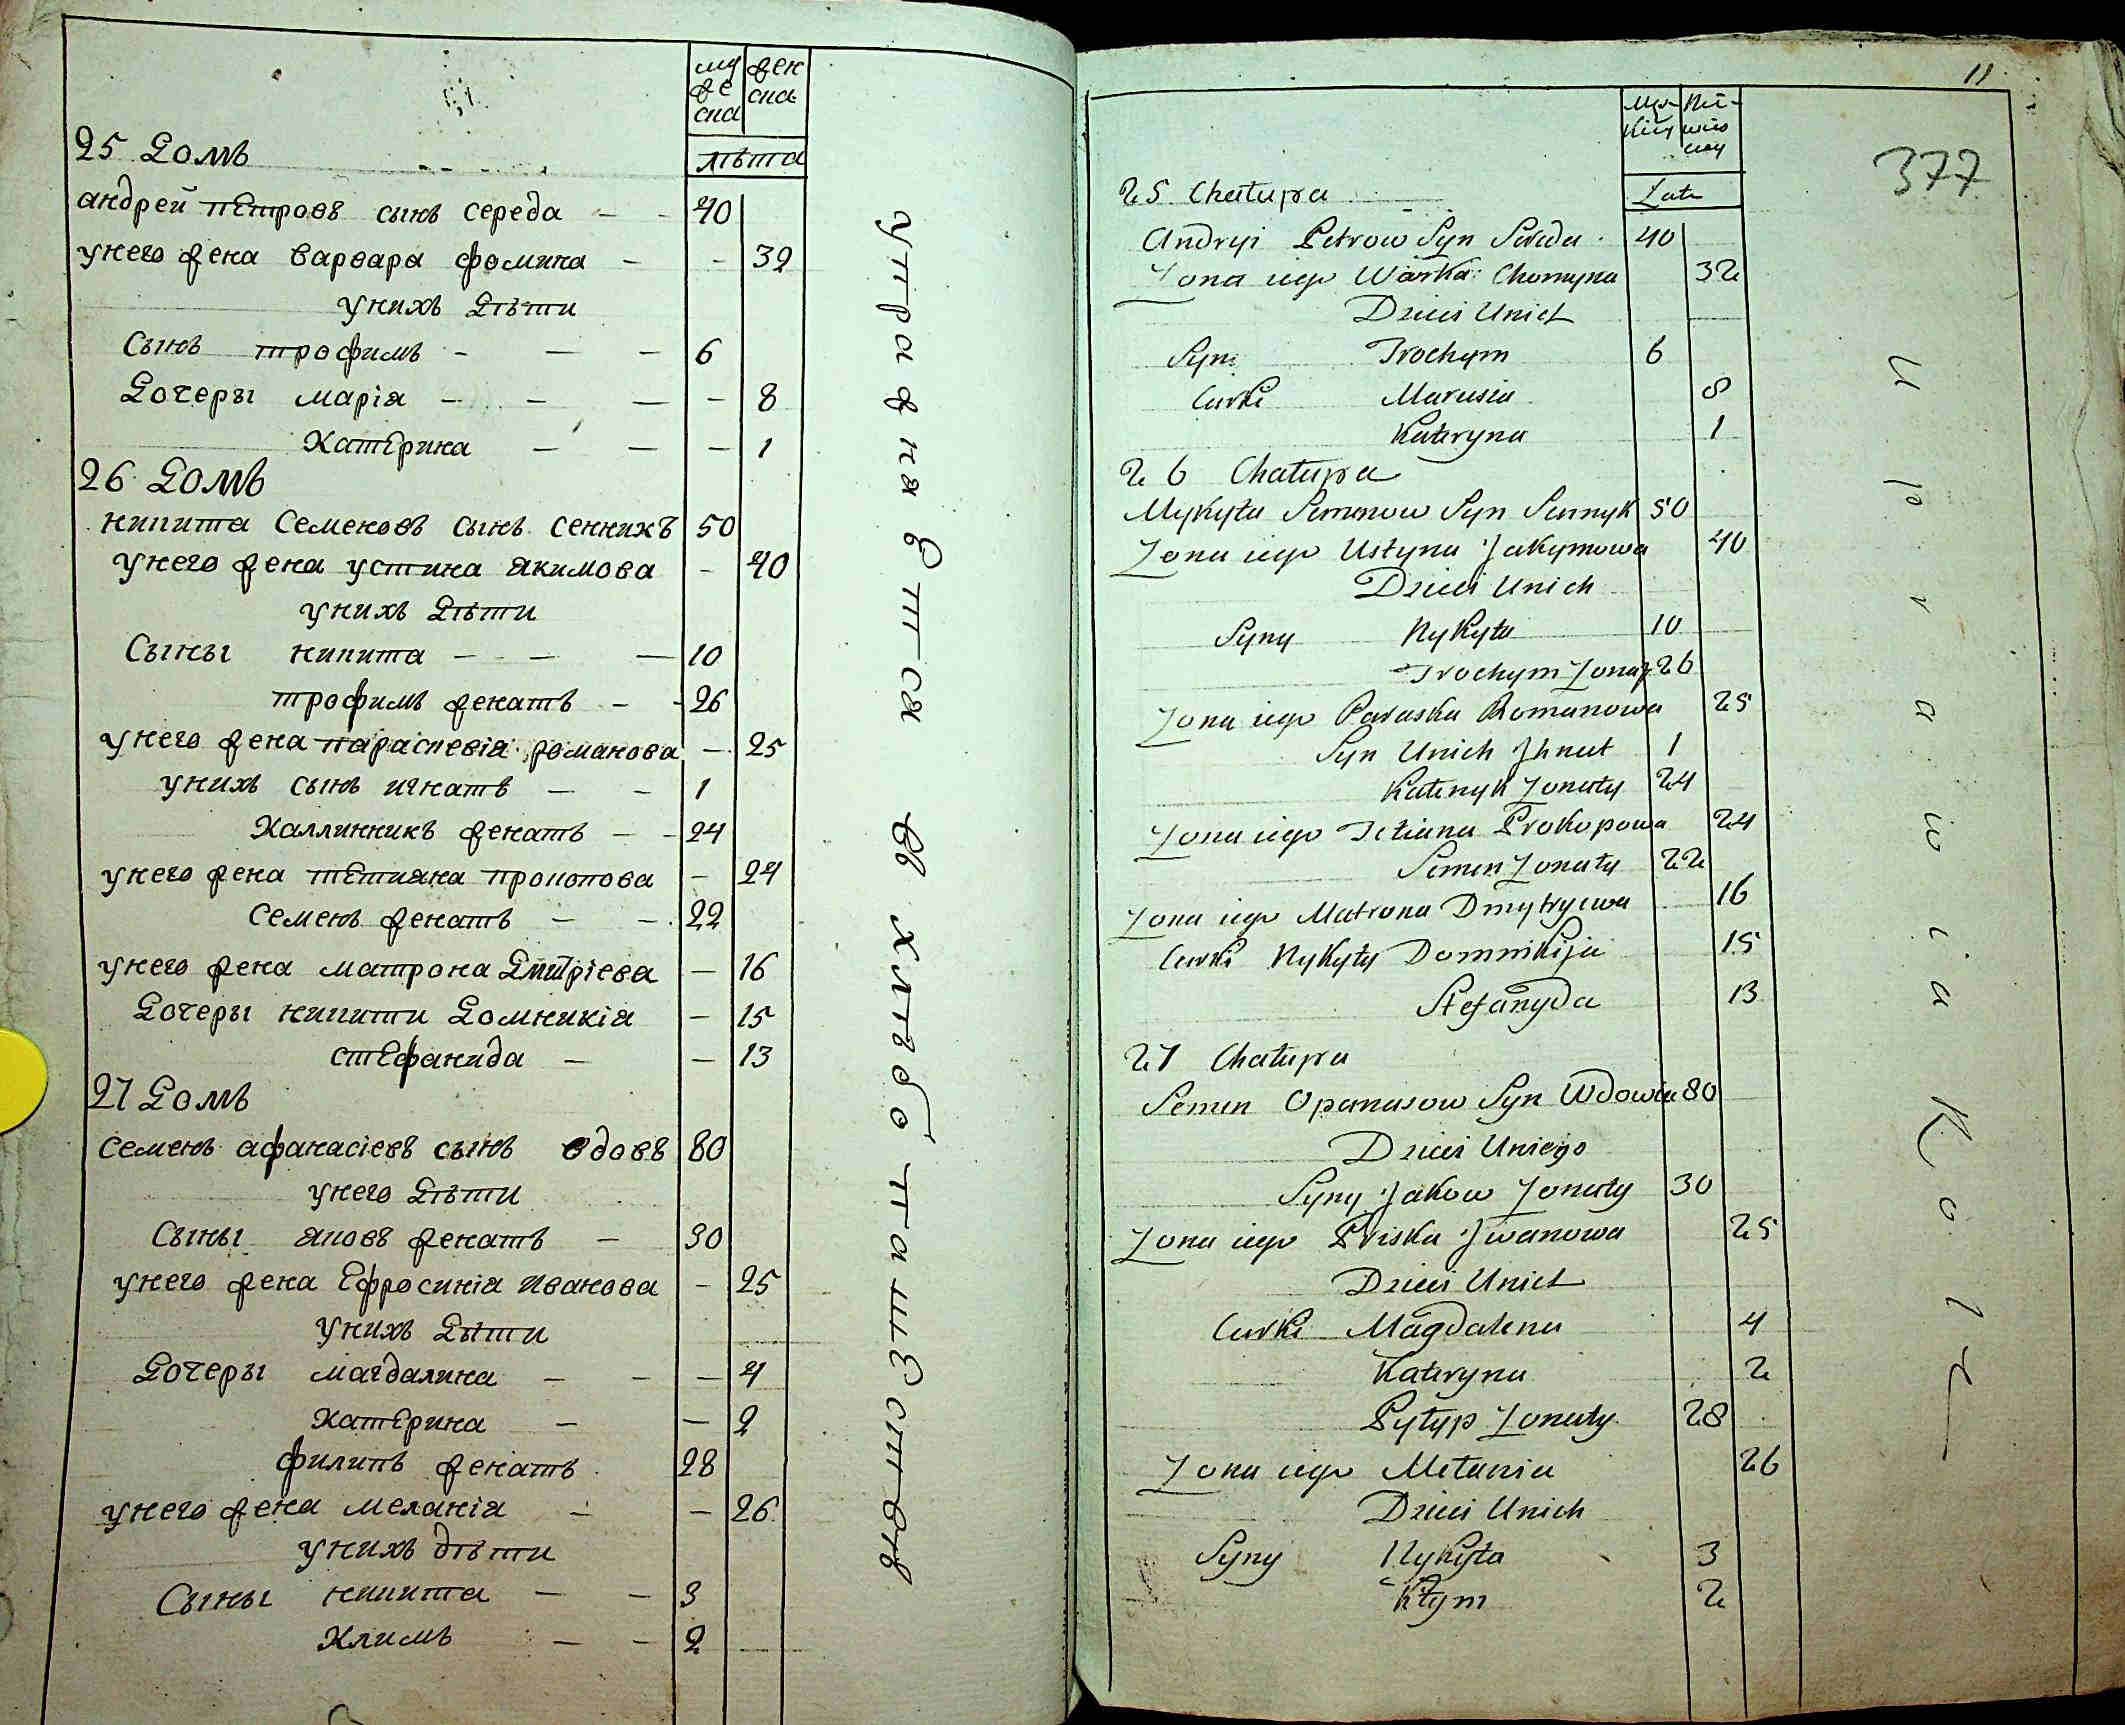 му
же
ска
жен
ска
лѣта
25 Домъ
андрей петровъ сынъ середа — - 40
унего жена варвара фомина - - 32
унихъ Дѣти
Сынъ трофимъ - — — 6
Дочеры марія — - — - 8
Катерина — — — 1
26 Домъ
никита Семеновъ сынъ сенникъ 50
унего жена устина якимова - 40
унихъ Дѣти
Сыны никита — - — 10
трофимъ женатъ - - 26
унего жена параскевія романова — 25
унихъ сынъ игнатъ — - 1
Каллинникъ женатъ — - 24
унего жена тетияна прокопова — 24
Семенъ женатъ — - 22
унего жена матрона Дмитріева — 16
Дочеры никити Домникія — 15
стефанида — — 13
27 Домъ
семенъ афанасіевъ сынъ вдовъ 80
унего Дѣти
Сыны яковъ женатъ — 30
унего жена Ефросинія иванова - 25
унихъ Дѣти
Дочеры магдалина — - — 4
Катерина — — 2
филипъ женатъ 28
унего жена меланія — — 26
унихъ дѣти
Сыны никита — — 3
Климъ — - 2
упражняется въ хлѣбопашествѣ
11
377
Męz-
kiey
Nie-
wies
ciey
Lata
25 Chałupa
Andryi Petrow Syn Sereda 40
Zona iego Warka Chomyna 32
Dzieci Unich
Syn Trochym 6
Curki Marusia 8
Kateryna 1
26 Chałupa
Mykyta Semenow Syn Sennyk 50
Zona iego Ustyna Jakymowa 40
Dzieci Unich
Syny Nykyta 10
Trochym Zonaty 26
Zona iego Paraska Romanowa 25
Syn Unich Jhnat 1
Kalenyk Zonaty 24
Zona iego Tetiana Prokopowa 24
Semen Zonaty 22
Zona iego Matrona Dmytryewa 16
Curki Nykyty Domnikija 15
Stefanyda 13
27 Chałupa
Semen Opanasow Syn Wdowiec 80
Dzieci Uniego
Syny Jakow Zonaty 30
Zona iego Priska Jwanowa 25
Dzieci Unich
Curki Magdalena 4
Kateryna 2
Pyłyp Zonaty 28
Zona iego Mełania 26
Dzieci Unich
Syny Nykyta 3
Kłym 2
Uprawia Rolę